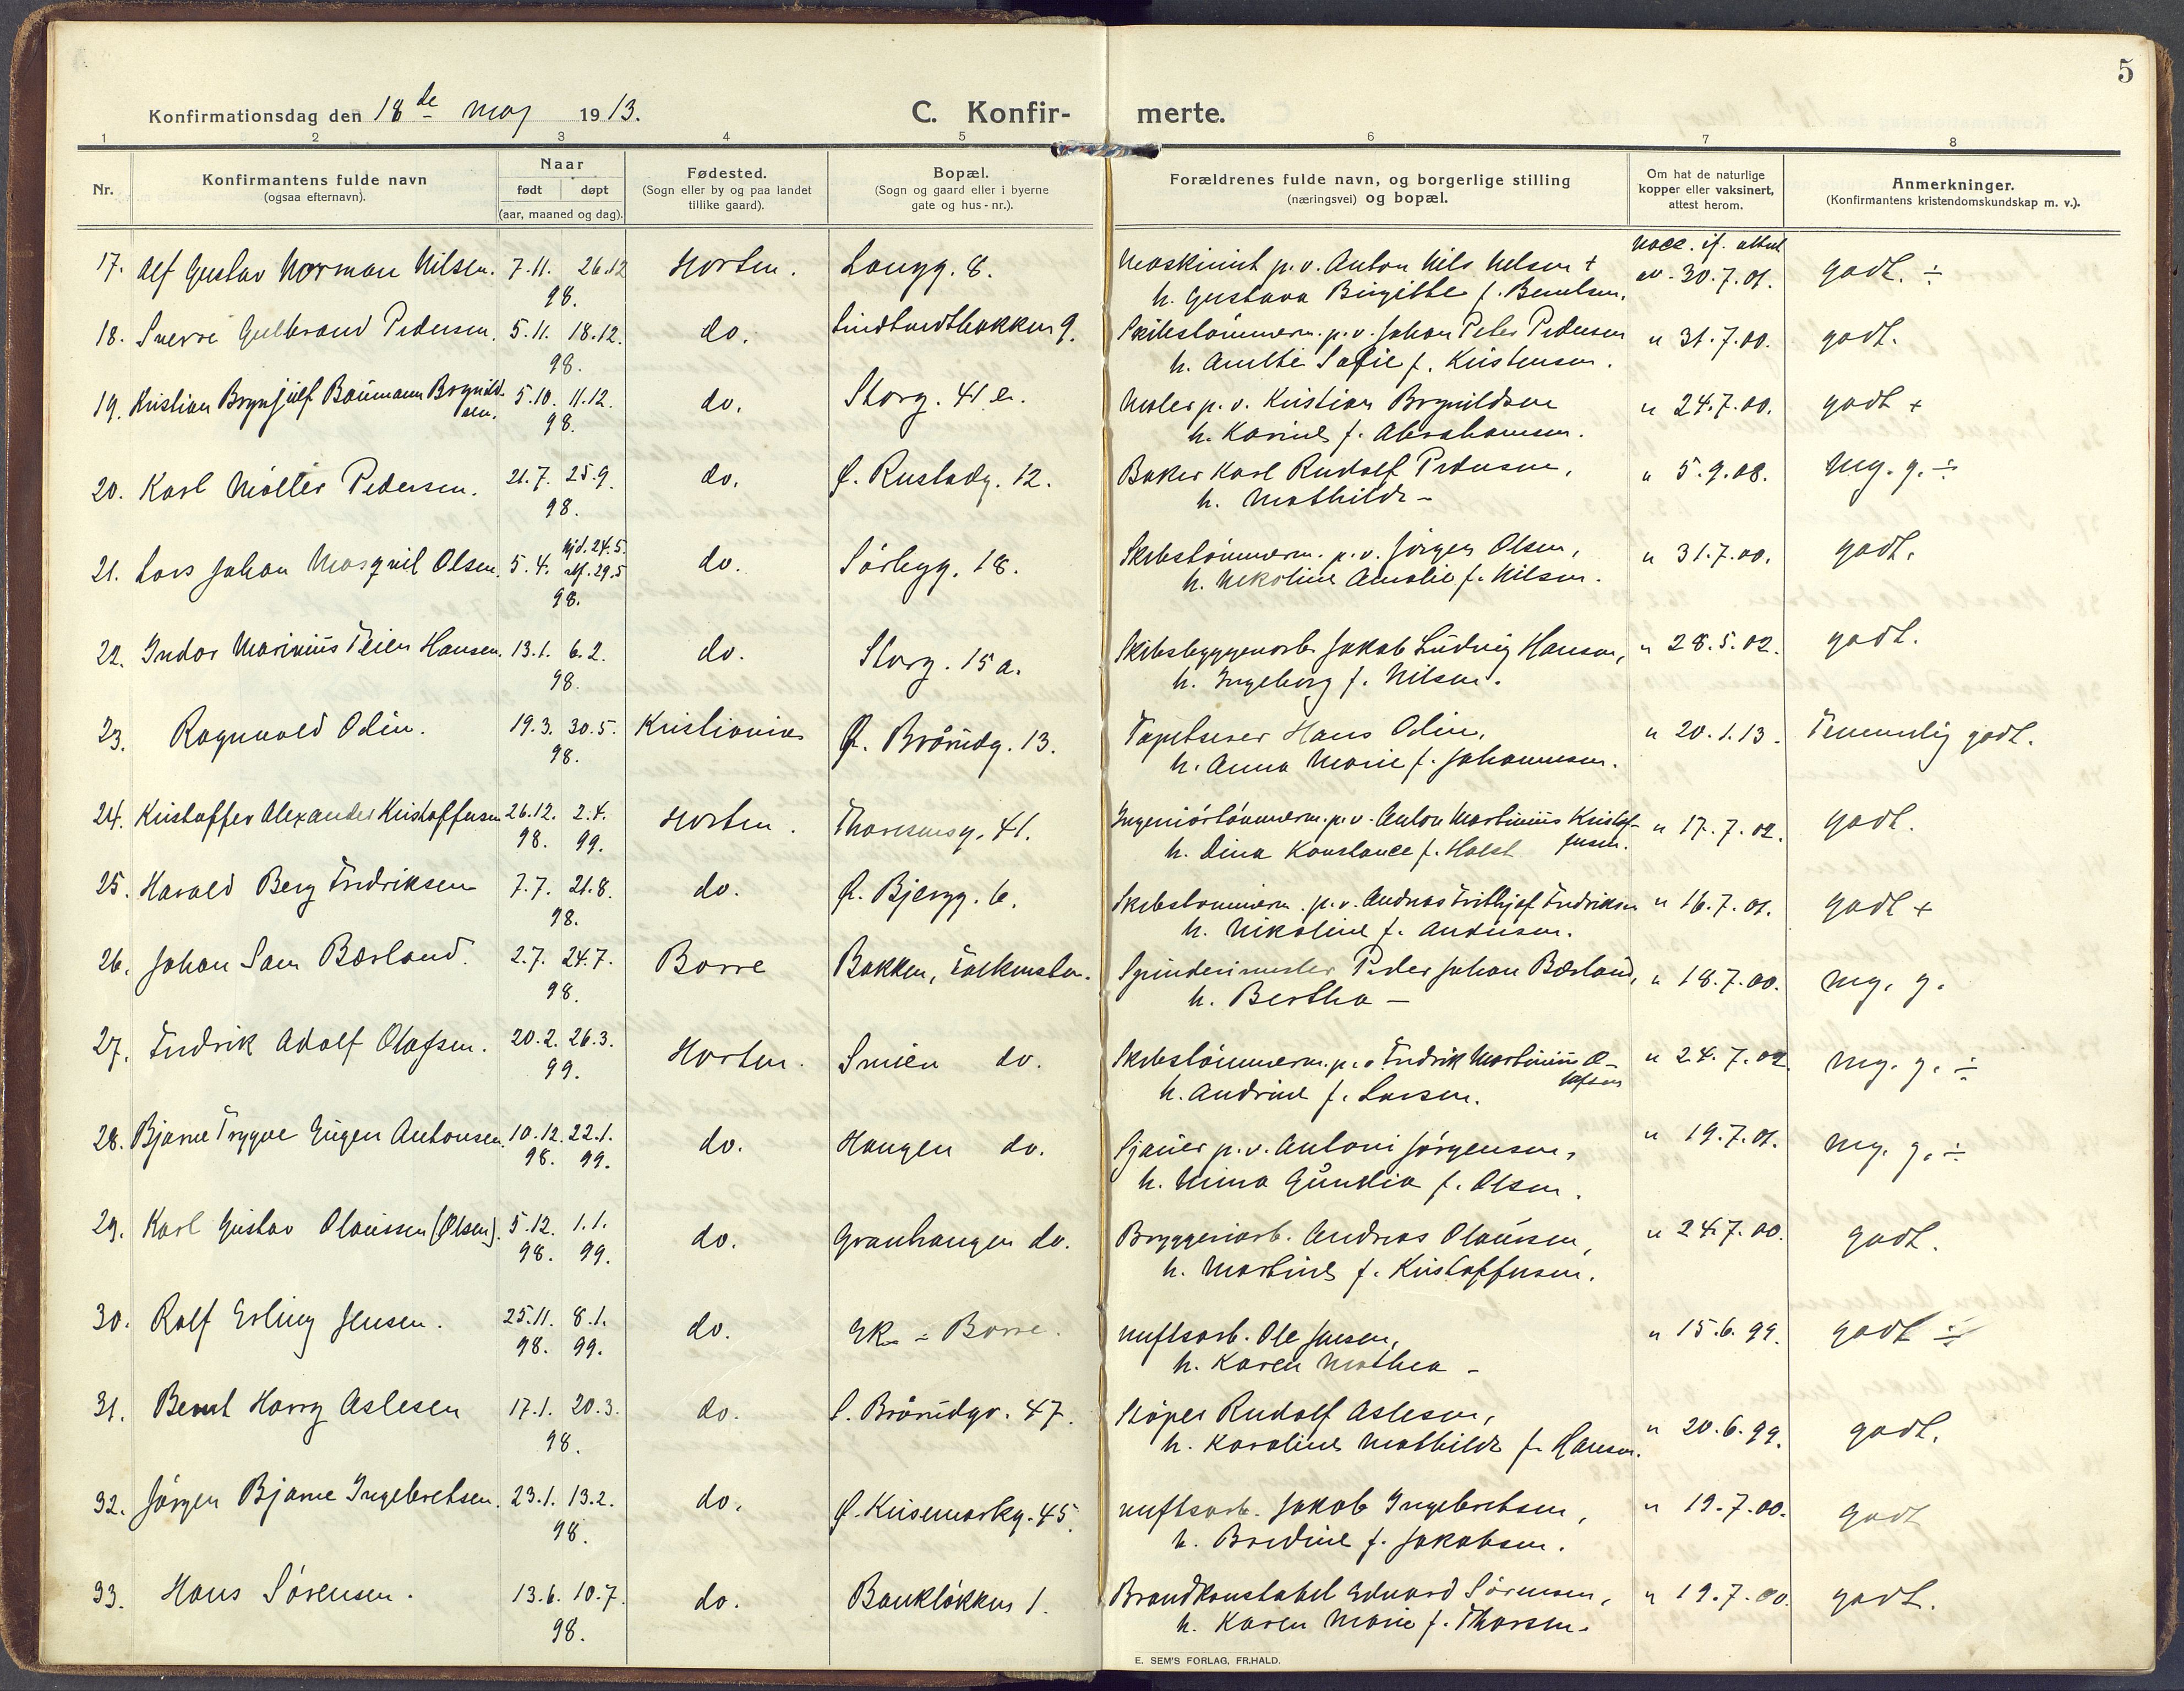 5
Konfirmationsdag den 18de maj 1913.
C. Konfir- merte.
1 2 3 4 5 6 7 8
Nr.
Konfirmantens fulde navn
(ogsaa efternavn).
Naar
født døpt
(aar, maaned og dag).
Fødested.
(Sogn eller by og paa landet
tillike gaard).
Bopæl.
(Sogn og gaard eller i byerne
gate og hus-nr.).
Forældrenes fulde navn, og borgerlige stilling
(næringsvei) og bopæl.
Om hat de naturlige
kopper eller vaksinert,
attest herom.
Anmerkninger.
(Konfirmantens kristendomskundskap m. v.).
17. Alf Gustav Norman Nilsen. 7.11. 26.12 Horten. Langg. 8. Maskinist p.v. Anton Nils Nilsen + vacc. if. attest av 30.7.01. godt. ÷
98. h. Gustava Birgitte f. Berntsen.
18. Sverre Gulbrand Pedersen. 5.11. 18.12. do. 9. Skibstömmerm. p.v. Johan Peter Pedersen " 31.7.00. godt.
98. h. Anethe Sofie f. Kristensen.
19. Kristian Brynjulf Baumann Brynild- 5.10. 11.12. do. Storg. 41 e. Maler p.v. Kristian Brynildsen " 24.7.00. godt +
sen. 98. h. Karine f. Abrahamsen.
20. Karl Möller Pedersen. 21.7. 25.9. do. Ø. Rustadg. 12. Baker Karl Rudolf Pedersen, " 5.9.08. mg. g. ÷
98. h. Mathilde –
21. Lars Johan Olsen. 5.4. hjd. 24.5. 29.5 do. Sörbyg. 18. Skibstömmerm. p.v. Jörgen Olsen, " 31.7.00. godt.
98. h. Nikoline Amalie f. Nilsen.
22. Indar Marinius Teien Hansen. 13.1. 6.2. do. Storg. 15 a. Skibsbyggerarb. Jakob Ludvig Hansen, " 28.5.02. godt.
98. h. Ingeborg f. Nilsen.
23. Ragnvald Odin. 19.3. 30.5. Kristiania Ø. Bråridg. 13. Tapetserer Hans Odin, " 20.1.13. Temmelig godt.
98. h. Anna Marie f. Johannesen.
24. Kristoffer Alexander Kristoffersen 26.12. 2.4. Horten. Thoresensg. 41. Ingeniörtömmerm. p.v. Anton Martinius Kristof- " 17.7.02. godt.
98. 99. h. Dina Konstance f. Holst fersen.
25. Harald Berg Fredriksen 7.7. 21.8. do. Ø. Bjergg. 6. Skibstömmerm. p.v. Andreas Frithjof Fredriksen " 16.7.01. godt +
98. h. Nikoline f. Andersen.
26. Johan Sam Bærland. 2.7. 24.7. Borre Bakken, Falkensten. Spinderimester Peder Johan Bærland, " 18.7.00. mg. g.
98. h. Bertha –
27. Fredrik Adolf Olafsen. 20.2. 26.3. Horten. Smien do. Skibstömmerm. p.v. Fredrik Martinius O- " 24.7.02. mg. g. ÷
99. h. Andrine f. Larsen. lafsen
28. Bjarne Trygve Eugen Antonsen. 10.12. 22.1. do. Haugen do. Sjauer p.v. Antoni Jörgensen, " 19.7.01. mg. g. ÷
98. 99. h. Mina Gunelia f. Olsen.
29. Karl Gustav Olaussen (Olsen). 5.12. 1.1. do. Granhaugen do. Bryggeriarb. Andreas Olaussen, " 24.7.00. godt.
98. 99. h. Martine f. Kristoffersen.
30. Rolf Erling Jensen. 25.11. 8.1. do. Ek – Borre. Ole Jensen, " 15.6.99. godt ÷
98. 99. h. Karen Mathea –
31. Bernt Harry Aslesen 17.1. 20.3. do. 47. Støper Rudolf Aslesen, " 20.6.99. godt.
98. h. Karoline Mathilde f. Hansen.
32. Jörgen Bjarne Ingebretsen. 23.1. 13.2. do. 45. Jakob Ingebretsen, " 19.7.00. godt
98. h. Bredine f. Jakobsen.
33. Hans Sörensen. 13.6. 10.7. do. Bankløkken 1. Brandkonstabel Edvard Sörensen, " 19.7.00. godt.
98. h. Karen Marie f. Thorsen.
E. SEM'S FORLAG, FR.HALD.